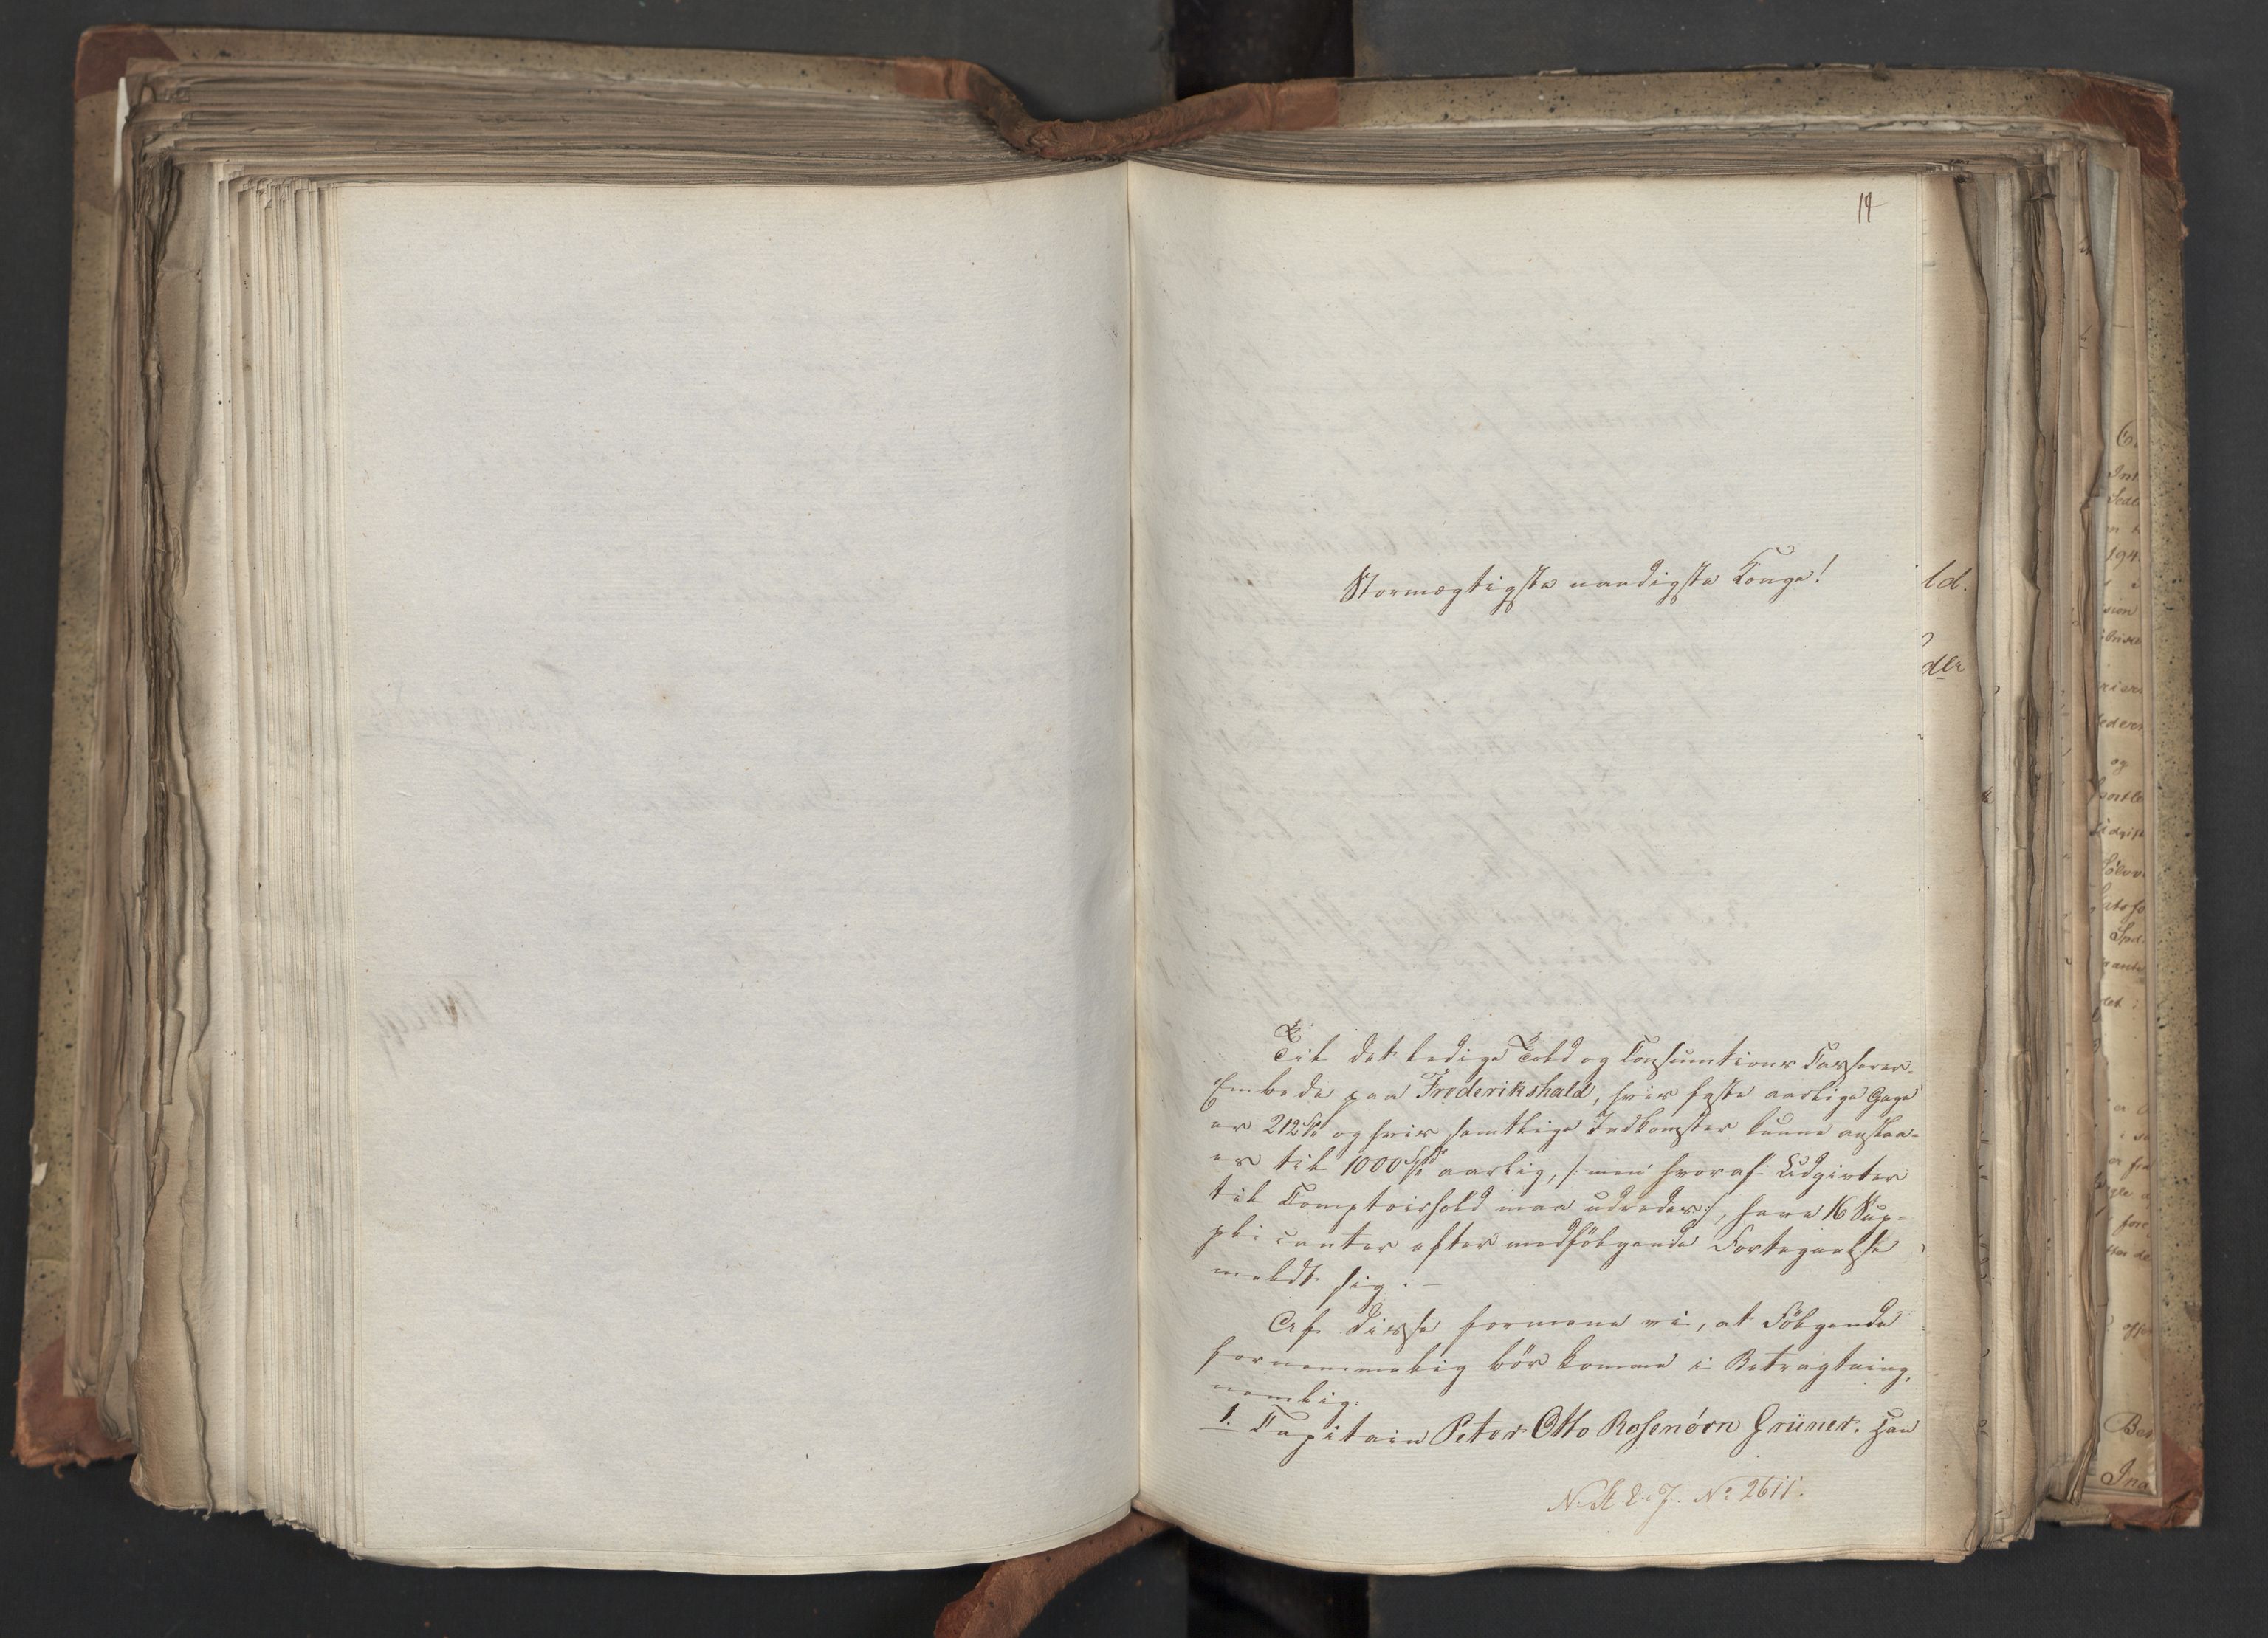 14
Stormægtigste naadigste Konge!
ld.
Til det ledige Told og Consumtions Casserer-
Embede paa Frederikshald, hvis faste aarlige Gage
er 212 Spd og hvis samtlige Indkomster kunne anslaa-
es til 1000 Spd aarlig, /: men hvoraf Udgivter
til Comptoirhold maa udredes :/, have 16 Sup-
plicanter efter medfölgende Fortegnelse
meldt sig. -
Af disse formene vi, at Fölgende
fornemmelig bör komme i Betragtning,
nemlig:
1. Capitain Peter Otto Rosenörn Grüner. Han
N. St. E. J. No 2611.